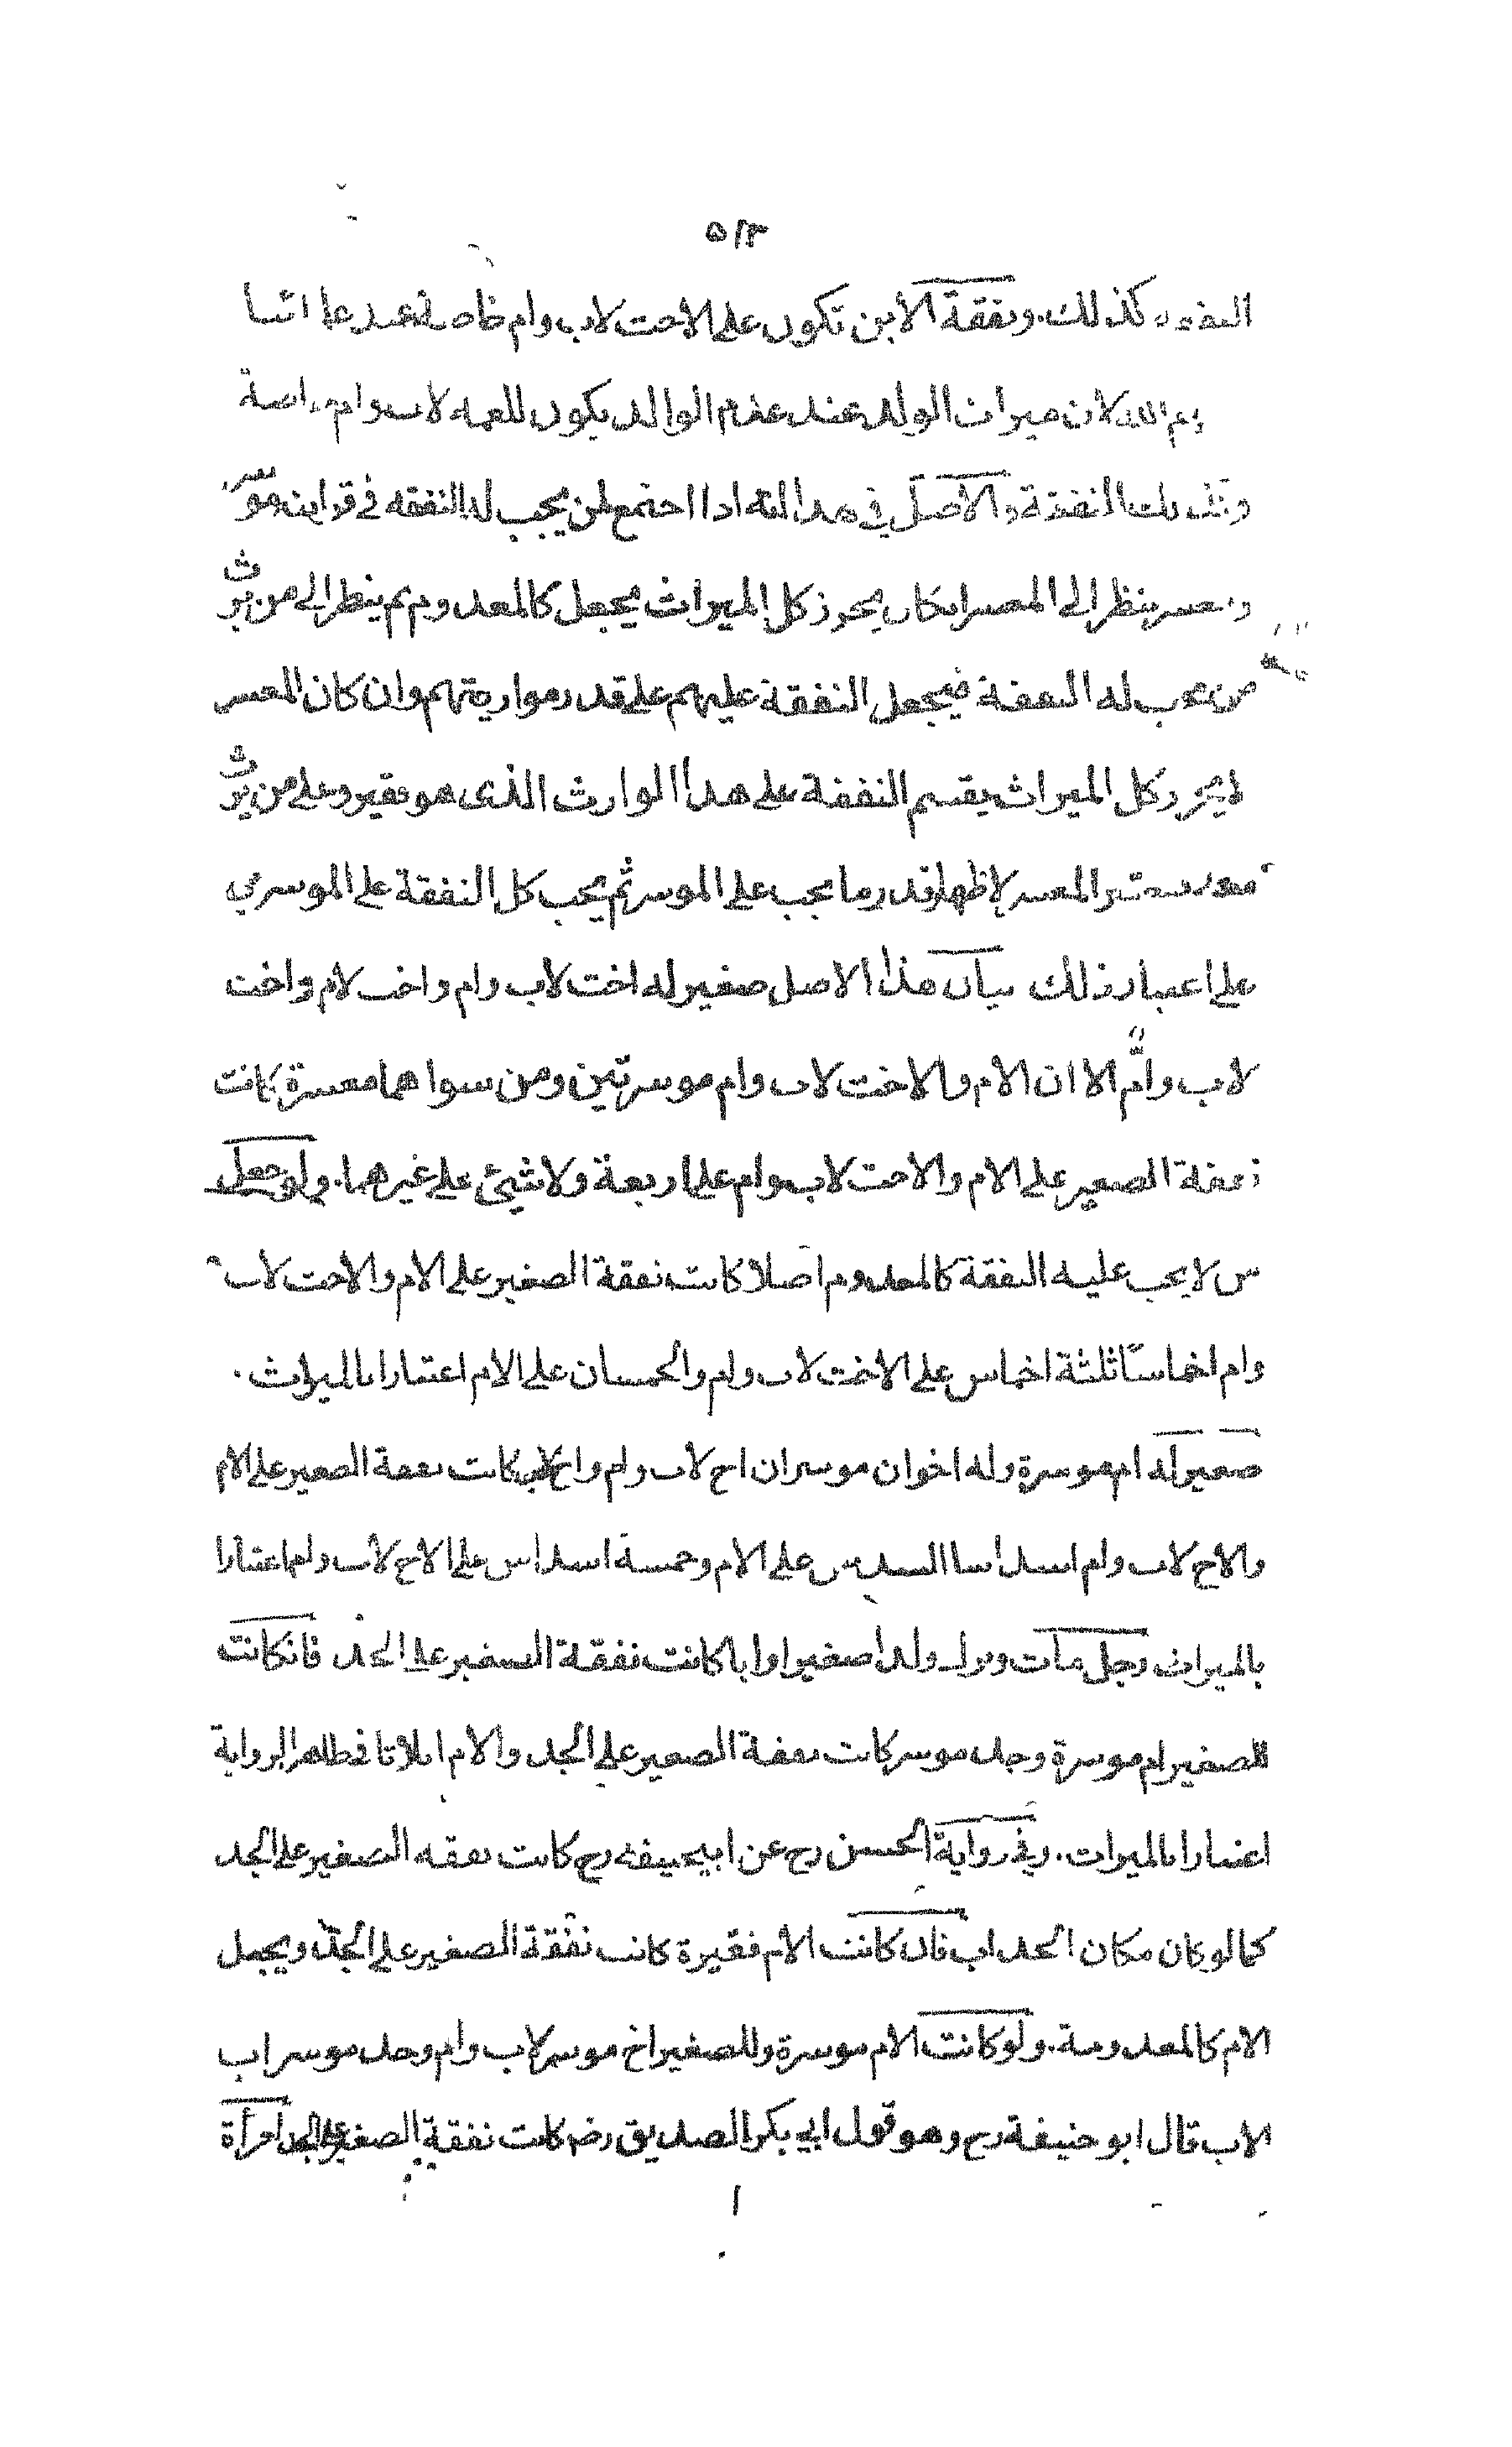 ٥١٣
النفقة كذلك . ونفقة الابن تكون على الاخت لاب وام خاصة عند علمائنا
رحمهم الله لان ميراث الولد عند عدم الوالد يكون للعمة لاب وام خاصة
وكذلك النفقة والاصل في هذا انه اذا اجتمع لمن يجب له النفقه في قرابته موسر
ومعسر ينظر الى المعسر انكان يحوز كل الميراث يجعل كالمعدوم ثم ينظر الى من يرث
من يجب له النفقة فيجعل النفقة عليهم على قدر مواريثهم وان كان المعسر
لا يحرز كل الميراث يقسم النفقة على هذا الوارث الذى هو فقير وعلى من يرث
معه فيعتبر المعسر لاظهار قدر ما يجب على الموسر ثم يجب كل النفقة على الموسرين
على اعتبار ذلك بيان هذا الاصل صغير له اخت لاب وام واخت لام واخت
لاب وام الا ان الام والاخت لاب وام موسرتين ومن سواهما معسرة كانت
نفقة الصغير على الام والاخت لاب وام على اربعة ولا شيئ على غيرهما . ولو جعل
من لا يجب عليه النفقة كالمعدوم اصلا كانت نفقة الصغير على الام والاخت لاب
وام اخماسًا ثلثة اخماس على الاخت لاب وام والخمسان على الام اعتبارا بالميراث .
صغير له ام موسرة وله اخوان موسران اخ لاب وام واخ لاب كانت نفقة الصغير على الام
والاخ لاب وام اسداسا السدس على الام وخمسة اسداس على الاخ لاب وام اعتبارا
بالميراث رجل مات وترك ولدا صغيرا وابا كانت نفقة الصغير على الجد فانكانت
للصغير ام موسرة وجد موسر كانت نفقة الصغير على الجد والام اثلاثا في ظاهر الرواية
اعتبارا بالميراث . وفي رواية الحسن رح عن ابيحنيفة رح كانت نفقه الصغير على الجد
كما لو كان مكان الجد اب فان كانت الام فقيرة كانت نفقة الصغير على الجد ويجعل
الام كالمعدومة . ولو كانت الام موسرة وللصغير اخ موسر لاب وام وجد موسر اب
الاب قال ابو حنيفة رح وهو قول ابي بكر الصديق رض كانت نفقة الصغير على الجد امرأة